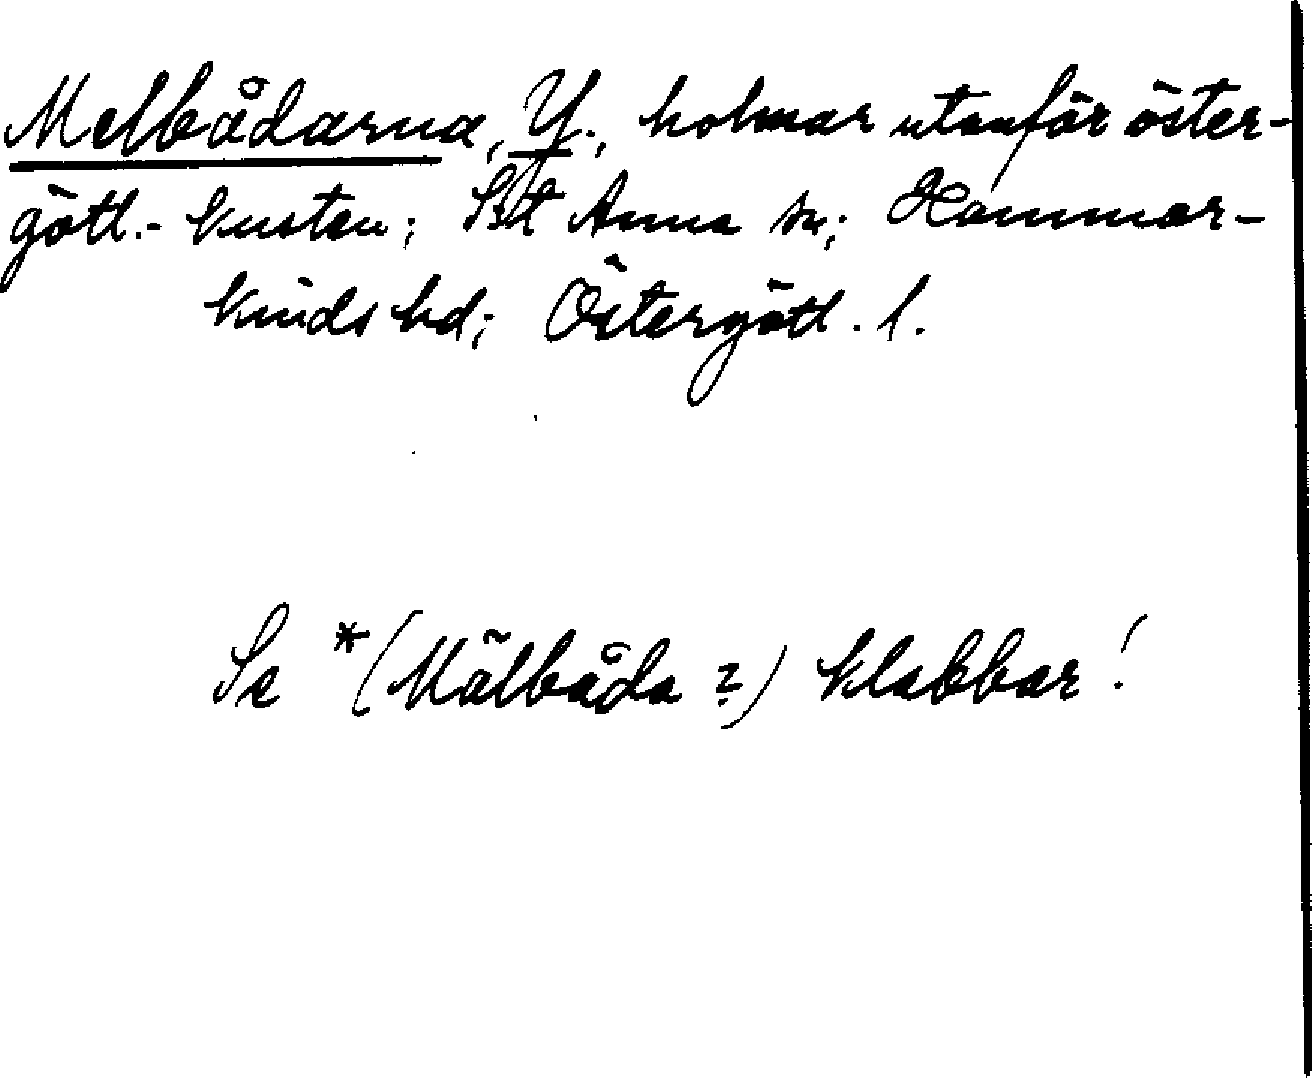 Melbådarna, Y.; holmar utanför öster-
götl.- kusten; St Anna sn; Hammar-
kinds hd; Östergötl. l.
Se *(Mälbåda ?) klabbar!